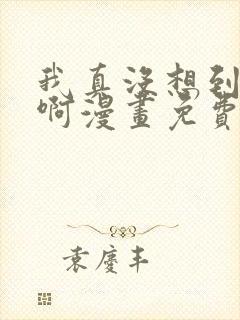 我真没想到
啊漫畫免費
袁慶丰